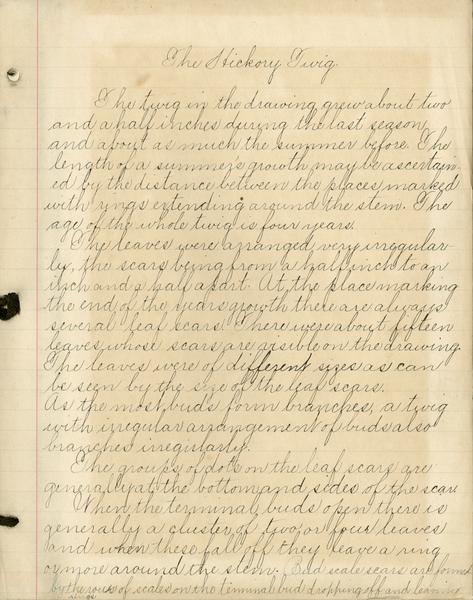 The Hickory Twig.
The twig in the drawing grew about two
and a half inches during the last season
and about as much the summer before. The
length of a summers growth may be ascertain-
ed by the distance between the places marked
with rings extending around the stem. The
age of the whole twig is four years.
The leaves were arranged very irregular-
ly, the scars being from a half inch to an
inch and a half apart. At the place marking
the end of the years growth there are always
several leaf scars. There were about fifteen
leaves whose scars are visible on the drawing.
The leaves were of different sizes as can
be seen by the size of the leaf scars.
As the most buds form branches, a twig
with irregular arrangement of buds also
branches irregularly.
The groups of dots on the leaf scars are
generally at the bottom and sides of the scar.
When the terminal buds open there is
generally a cluster of two or four leaves
and when these fall off they leave a ring
or more around the stem. Bud scale scars are formed
by the rows of scales on the terminal bud dropping off and leaving
rings